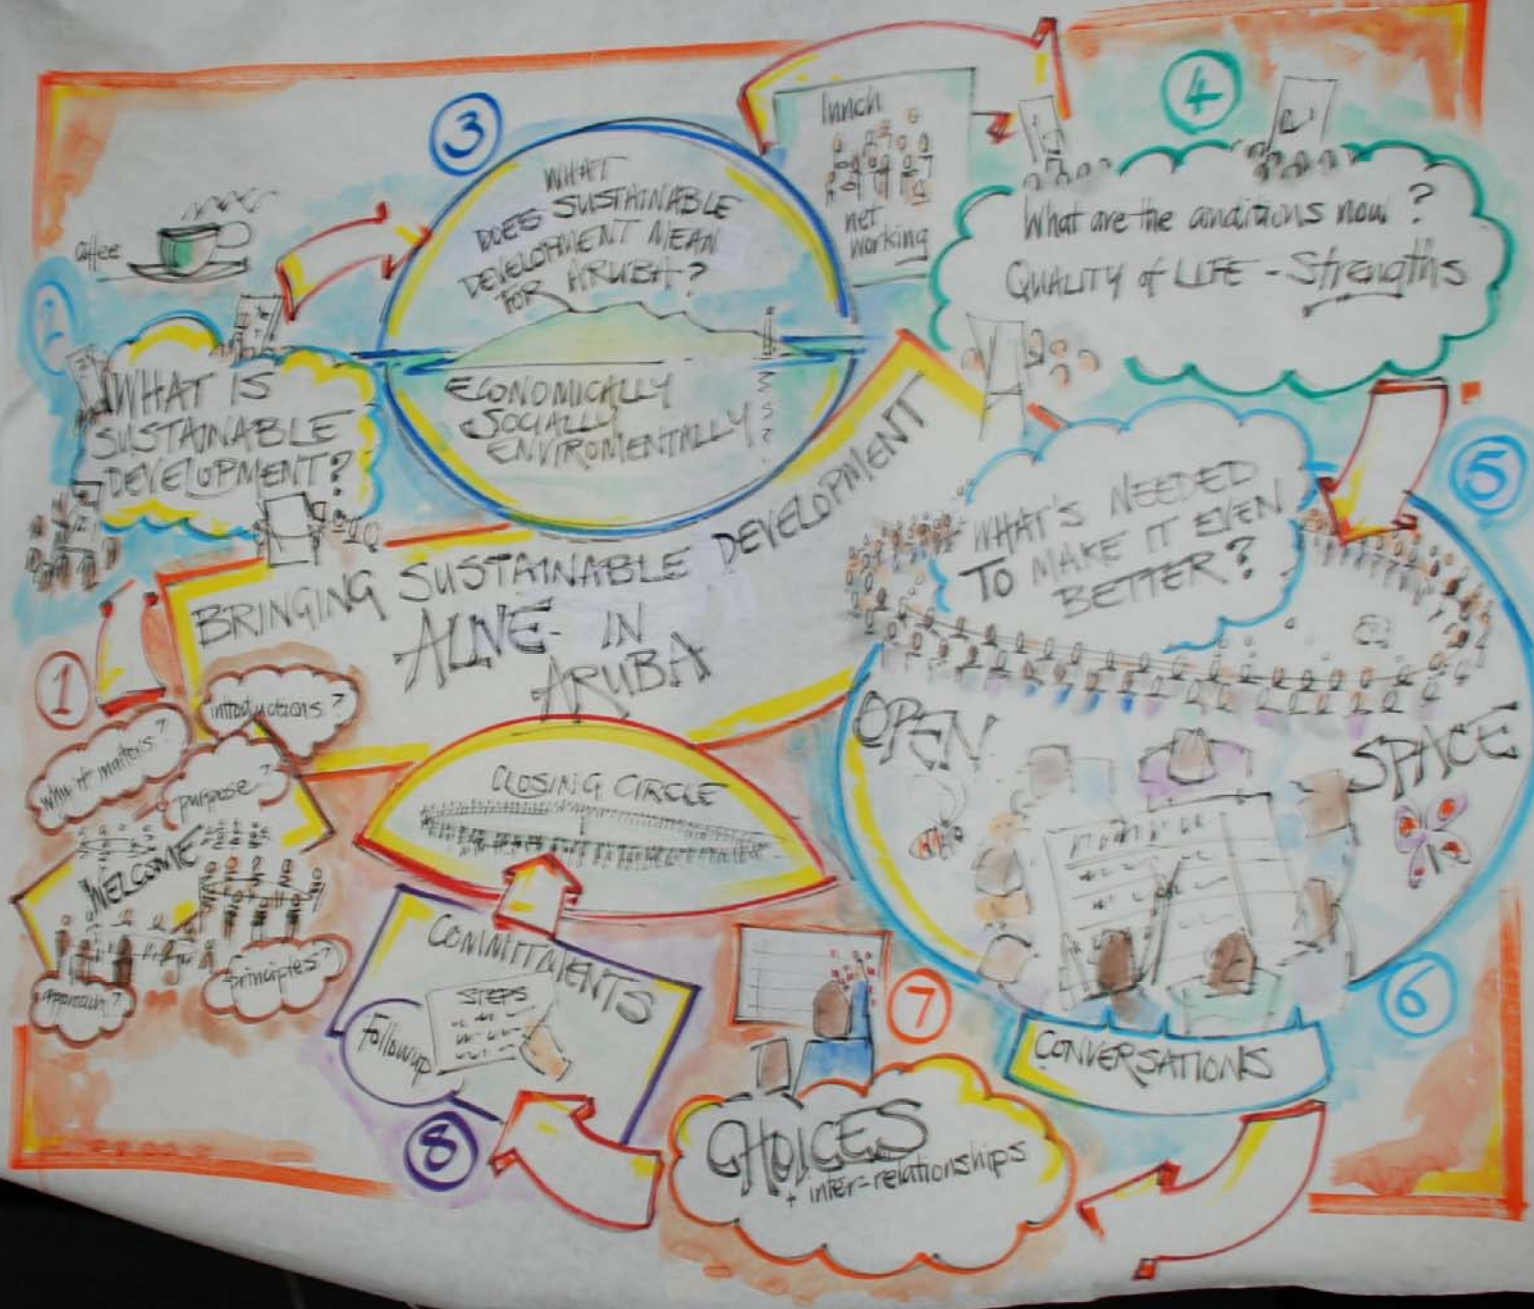 BRINGING SUSTAINABLE DEVELOPMENT
ALIVE IN
ARUBA
1
introductions?
why it matters?
purpose?
WELCOME
principles?
approach?
2
WHAT IS
SUSTAINABLE
DEVELOPMENT?
coffee
3
WHAT
DOES SUSTAINABLE
DEVELOPMENT MEAN
FOR ARUBA?
ECONOMICALLY
SOCIALLY
ENVIROMENTALLY
lunch
net
working
4
What are the conditions now?
QUALITY of LIFE - Strengths
5
WHAT'S NEEDED
TO MAKE IT EVEN
BETTER?
OPEN SPACE
6
CONVERSATIONS
7
CHOICES
+ inter-relationships
8
COMMITMENTS
STEPS
Followup
CLOSING CIRCLE